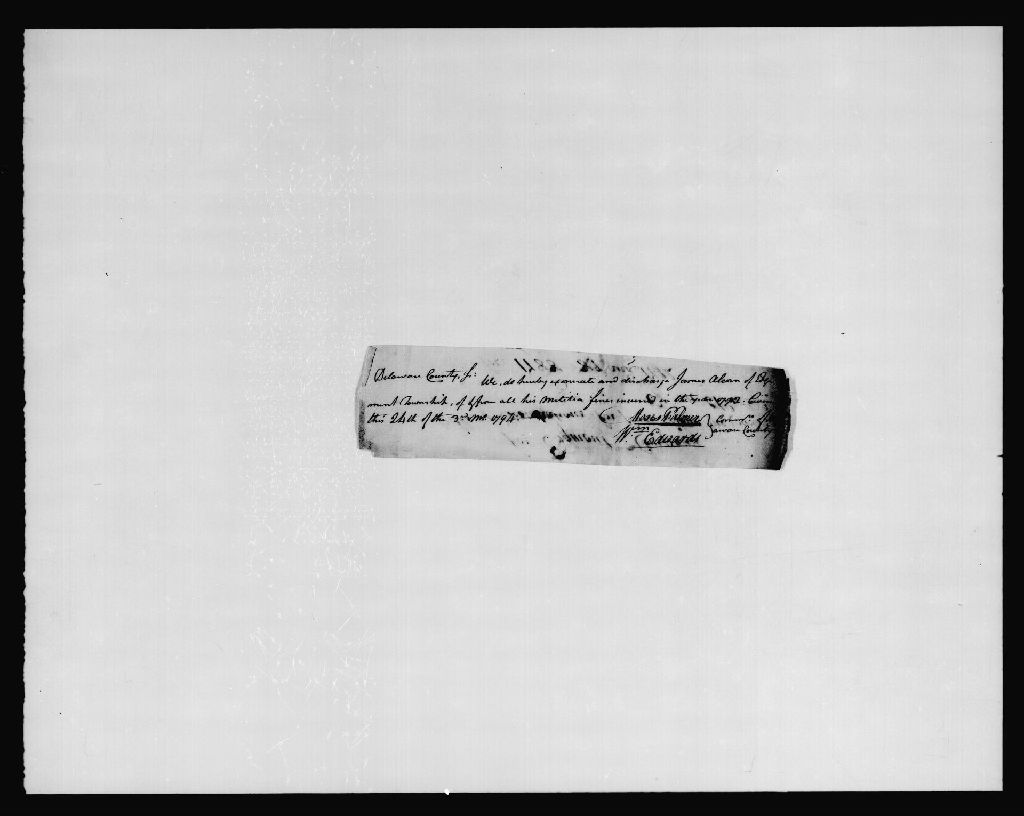 Delaware County, Ss:
We, do hereby exonerate and discharge James Alcorn of Edg
mont Township, of & from all his Militia fines incurred in the year 1793.
this 24th of the 3rd Mo. 1794.
Moses Palmer
Wm Edwards
Comrs. of
aware County